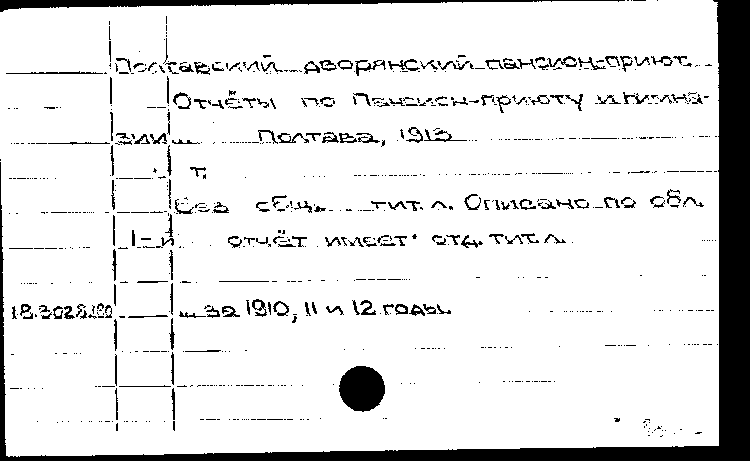 Полтавский дворянский пансион-приют.
Отчёты по Пансион-приюту и гимна-
зии... Полтава, 1913
т.
Без общ. тит. л. Описано по обл.
1-й отчёт имеет отд. тит. л.
18.302.8.180 ... за 1910, 11 и 12 годы.